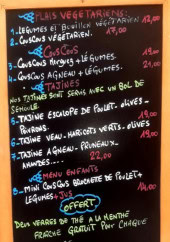 PLATS VEGETARIENS.
1. LEGUMES ET BOUILLON VEGETARIEN 12,00
2. COUSCOUS VEGETARIEN. 17,00
COUSCOUS
3. COUSCOUS MERGUEZ + LEGUMES. 19,00
4. COUSCOUS AGNEAU + LEGUMES. 21,00
TAJINES
NOS TAJINES SONT SERVIS AVEC UN BOL DE
SEMOULE.
6. TAJINE ESCALOPE DE POULET. OLIVES -
POIVRONS. 19,00
6. TAJINE VEAU. HARICOTS VERTS. OLIVES
19,00
4. TAJINE AGNEAU. PRUNEAUX -
AMANDES... 22,00
MENU ENFANTS
5. MINI COUSCOUS BROCHETTE DE POULET +
LEGUMES + JUS 14,00
OFFERT
DEUX VERRES DE THÉ A LA MENTHE
FRAICHE GRATUIT POUR CHAQUE